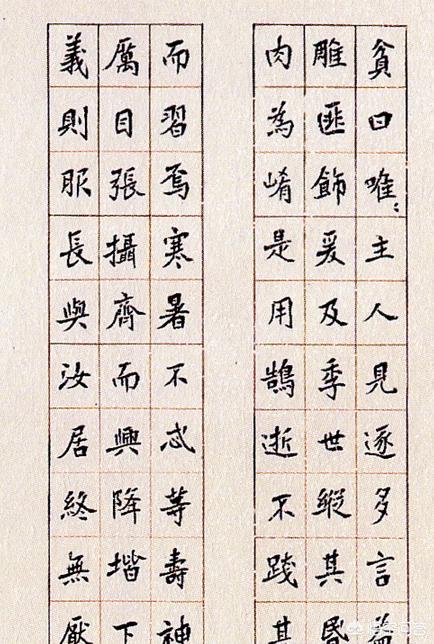 貧曰唯〻主人見逐多言益
雕匪飾爰及季世縱其昏
肉為崤是用鵠逝不踐其
而習焉寒暑不忒等壽神
厲目張攝齊而興降堦下
義則服長與汝居終無厭